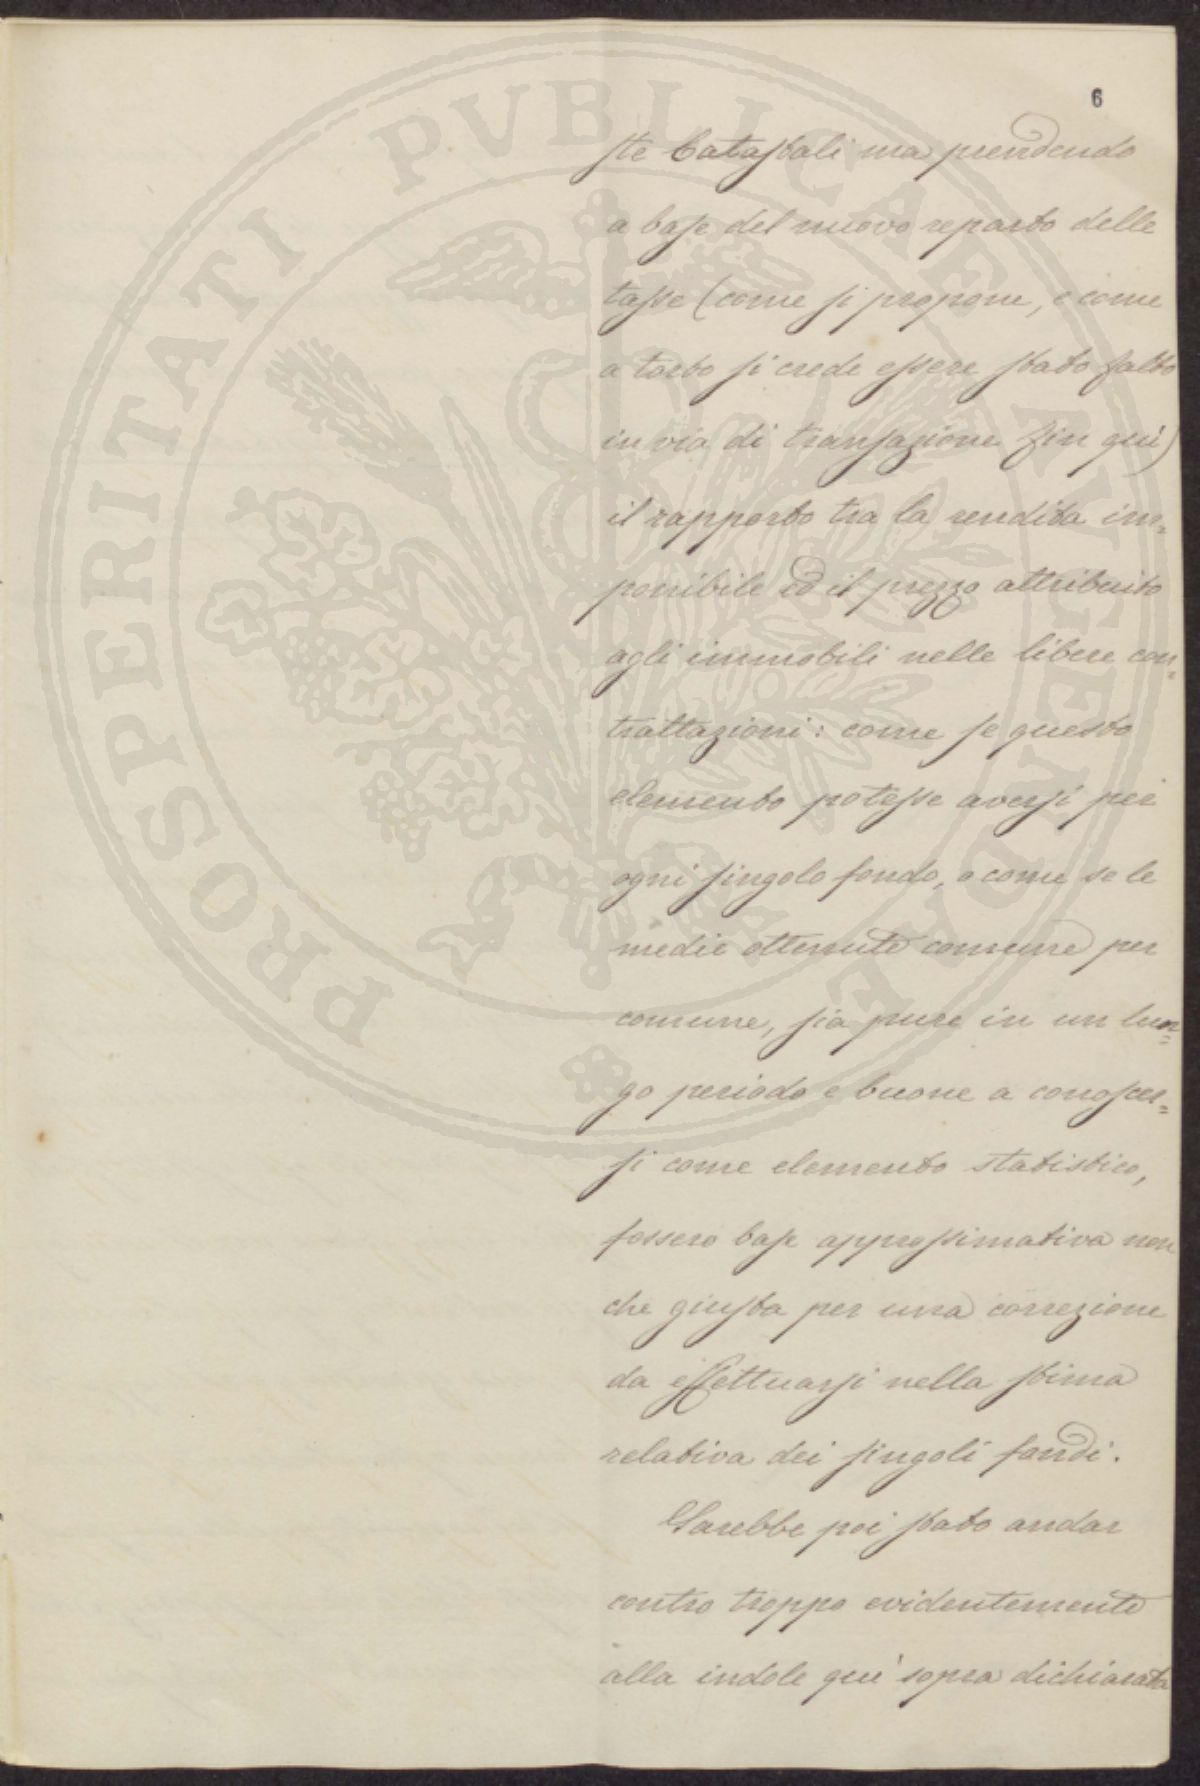 6
ste Catastali ma prendendo
a base del nuovo reparto delle
tasse (come si propone, e come
a torto si crede essere stato fatto
in via di transazione fin quì)
il rapporto tra la rendita im=
ponibile ed il prezzo attribuito
agli immobili nelle libere con=
trattazioni: come se questo
elemento potesse aversi per
ogni singolo fondo, o come se le
medie ottenute comune per
comune, sia pure in un lun=
go periodo e buone a conoscer=
si come elemento statistico,
fossero base approssimativa non
che giusta per una correzione
da effettuarsi nella stima
relativa dei singoli fondi.
Sarebbe poi stato andar
contro troppo evidentemente
alla indole quì sopra dichiarata
PROSPERITATI PVBLICAE AVGENDAE